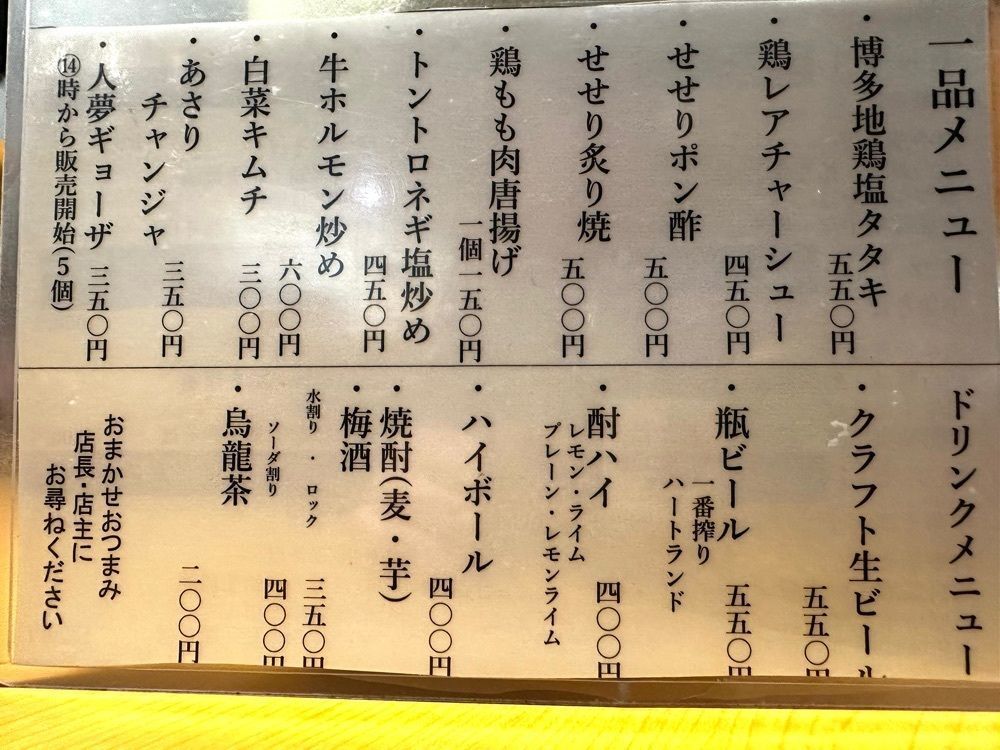 一品メニュー
・博多地鶏塩タタキ
五五〇円
・鶏レアチャーシュー
四五〇円
・せせりポン酢
五〇〇円
・せせり炙り焼
五〇〇円
・鶏もも肉唐揚げ
一個一五〇円
・トントロネギ塩炒め
四五〇円
・牛ホルモン炒め
六〇〇円
・白菜キムチ
三〇〇円
・あさり
チャンジャ
三五〇円
・人夢ギョーザ
三五〇円
⑭時から販売開始(5個)
ドリンクメニュー
・クラフト生ビール
五五〇円
・瓶ビール
五五〇円
一番搾り
ハートランド
・酎ハイ
四〇〇円
レモン・ライム
プレーン・レモンライム
・ハイボール
四〇〇円
・焼酎(麦・芋)
三五〇円
・梅酒
四〇〇円
水割り・ロック
ソーダ割り
・烏龍茶
二〇〇円
おまかせおつまみ
店長・店主に
お尋ねください